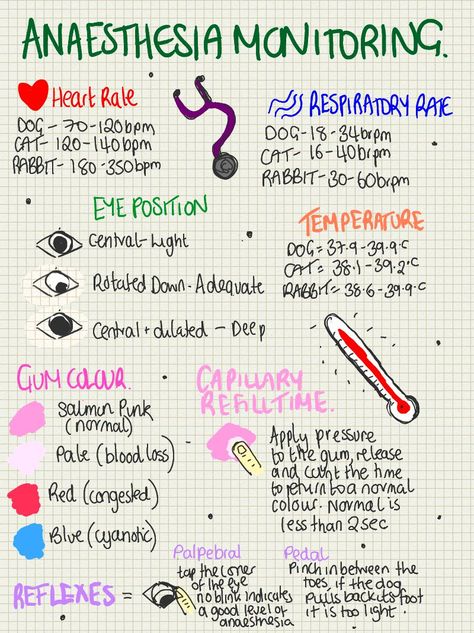 ANAESTHESIA MONITORING.
Heart Rate
DOG - 70-120bpm
CAT - 120-140bpm
RABBIT - 180-350bpm
RESPIRATORY RATE
DOG-18-34brpm
CAT- 16-40brpm
RABBIT-30-60brpm
EYE POSITION
Central-Light
Rotated Down-Adequate
Central + dilated - Deep
TEMPERATURE
DOG = 37.9-39.9°C
CAT = 38.1-39.2°C
RABBIT = 38.6-39.9°C
GUM COLOUR.
Salmon Pink
(normal)
Pale (blood loss)
Red (congested)
Blue (cyanotic)
CAPILLARY
REFILL TIME.
Apply pressure
to the gum, release
and count the time
to return to a normal
colour. Normal is
less than 2 sec
REFLEXES =
Palpebral
tap the corner
of the eye
no blink indicates
a good level of
anaesthesia
Pedal
Pinch in between the
toes, if the dog
pulls back its foot
it is too light.